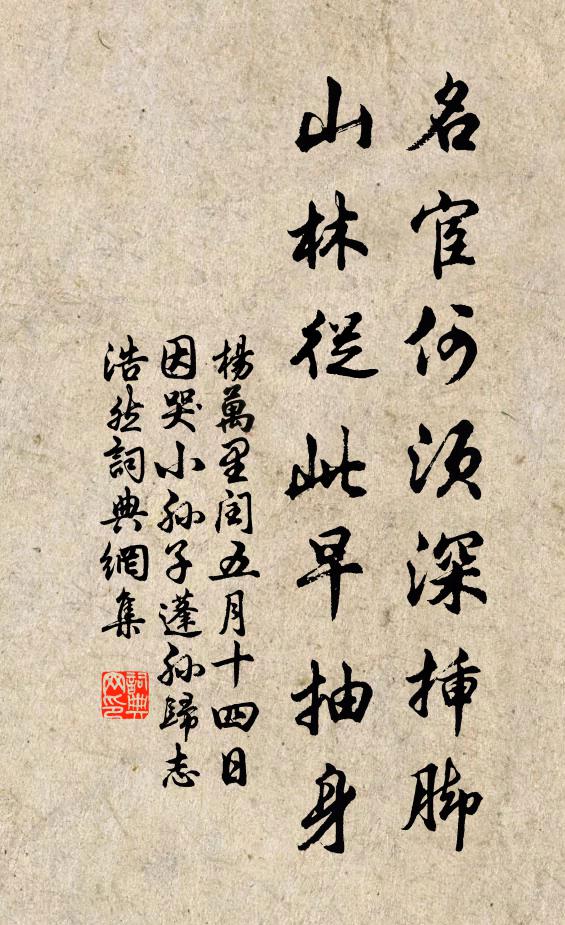 名宦何須深插脚
山林從此早抽身
楊萬里閏五月十四日
因哭小孫子蓬孫歸志
浩然詞典網集
詞典網印